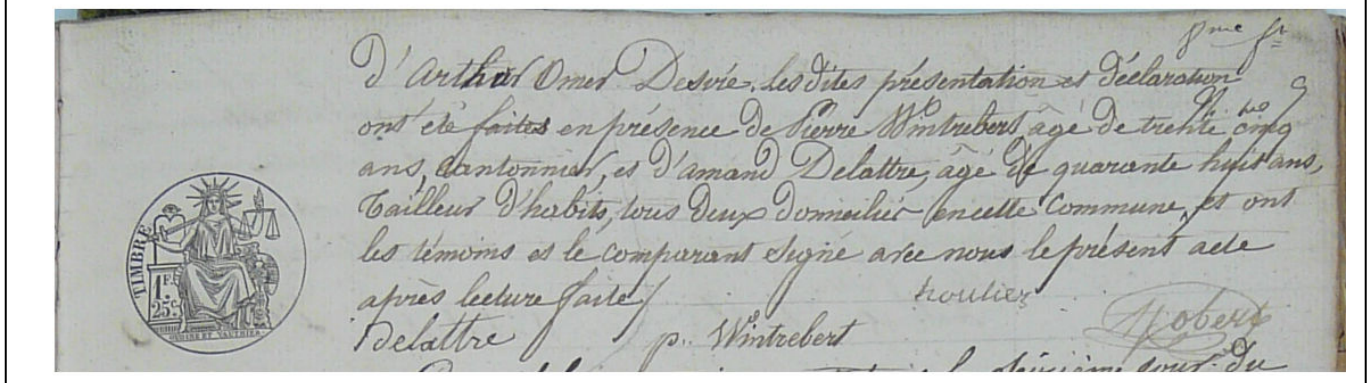 d'Arthur Omer Desvié. les dites présentation et déclaration
ont été faites en présence de Pierre Wintrebert, agé de trente cinq
ans, cantonnier, et d'amand Delattre, agé de quarante huit ans,
Tailleur d'habits, tous deux domicilié en cette commune, et ont
les témoins et le comparant signé avec nous le présent acte
après lecture faite/
TIMBRE
1 F.
25 C.
OUDINE ET VAUTHIER
houliez
Robert
Delattre p. Wintrebert
jour du